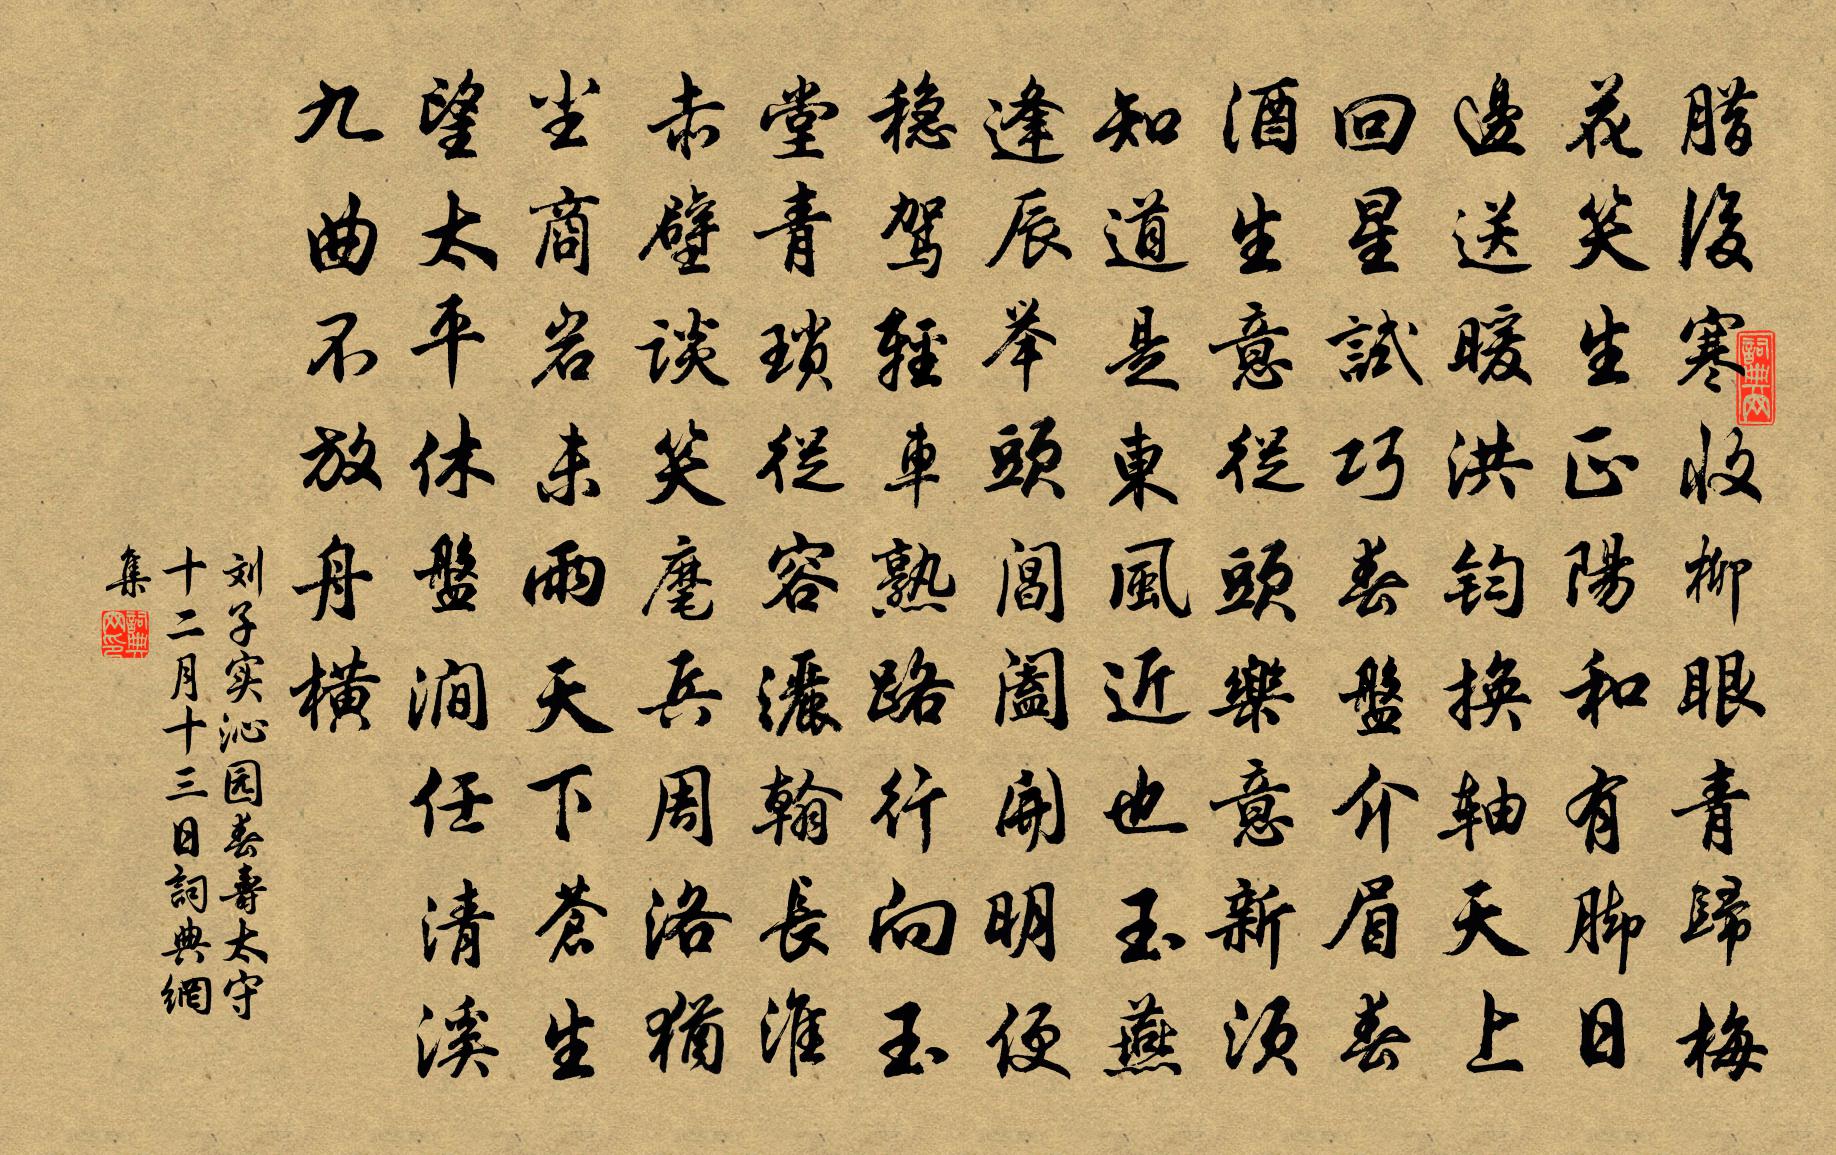 腊後寒收柳眼青歸梅
花笑生正陽和有脚日
邊送暖洪钧換轴天上
回星試巧春盤介眉春
酒生意從頭樂意新須
知道是東風近也玉燕
逢辰举頭閶阖開明便
稳驾輕車熟路行向玉
堂青琐從容灑翰長淮
赤壁談笑麾兵周洛犹
坐商岩未雨天下蒼生
望太平休盤涧任清溪
九曲不放舟横
刘子实沁园春壽太守
十二月十三日詞典網
集
詞典网
詞典网印